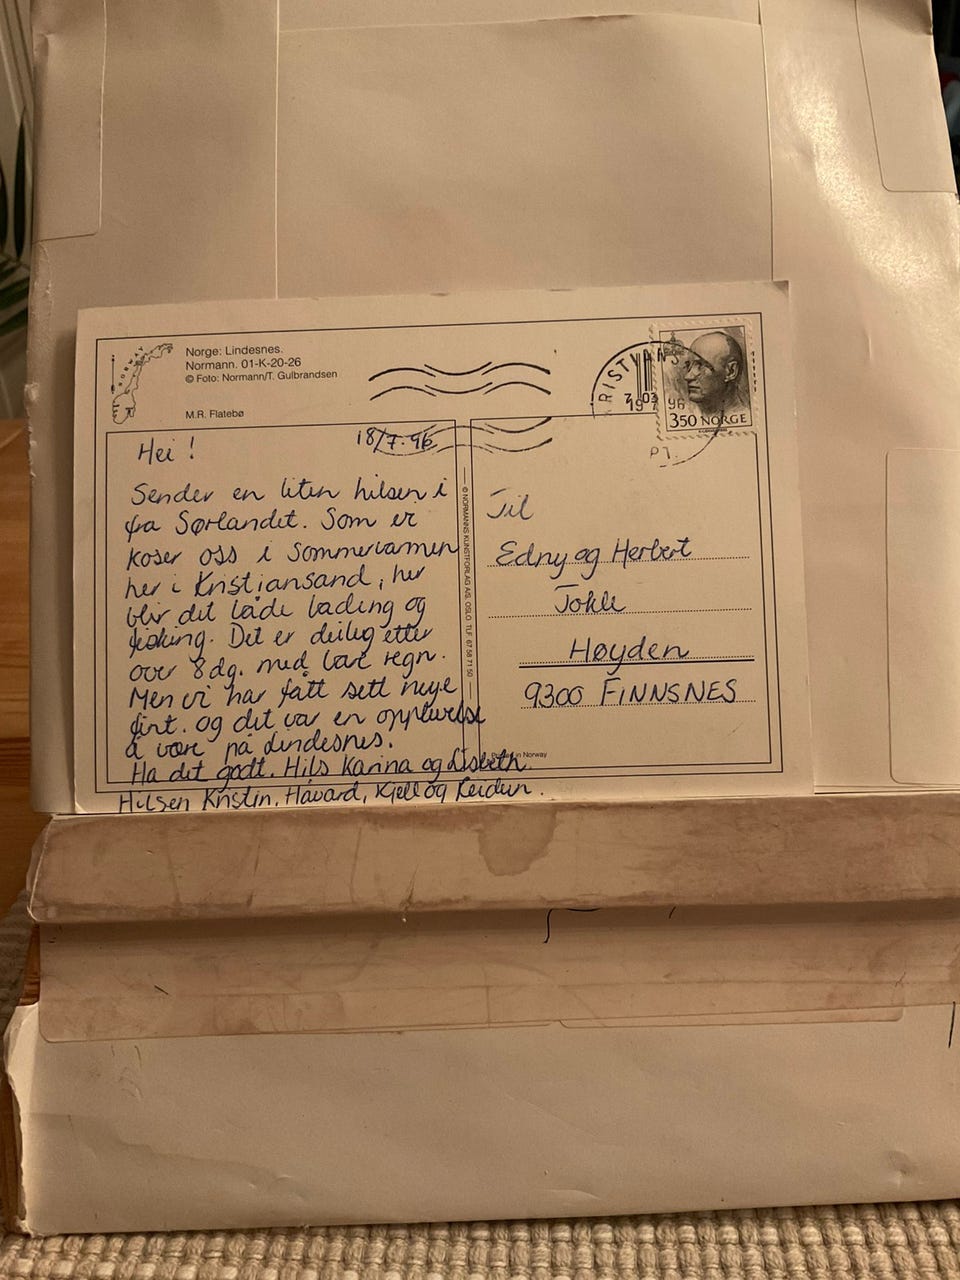 NORWAY
Norge: Lindesnes.
Normann. 01-K-20-26
© Foto: Normann/T. Gulbrandsen
M.R. Flatebø
KRISTIANS
7.03
19 96
P7.
350 NORGE
18/7-96
Hei !
Sender en liten hilsen i
fra Sørlandet. Som er
koser oss i Sommervarmen
her i Kristiansand, her
blir det både bading og
fisking. Det er deilig etter
over 8 dg. med bare regn.
Men vi har fått sett mye
fint. og det var en opplevelse
å være på Lindesnes.
Ha det godt. Hils Karina og Lisbeth.
Hilsen Kristin, Håvard, Kjell og Reidun.
© NORMANNS KUNSTFORLAG A/S, OSLO. TLF. 67 58 71 50
Til
Edny og Herbert
Tokle
Høyden
9300 FINNSNES
in Norway